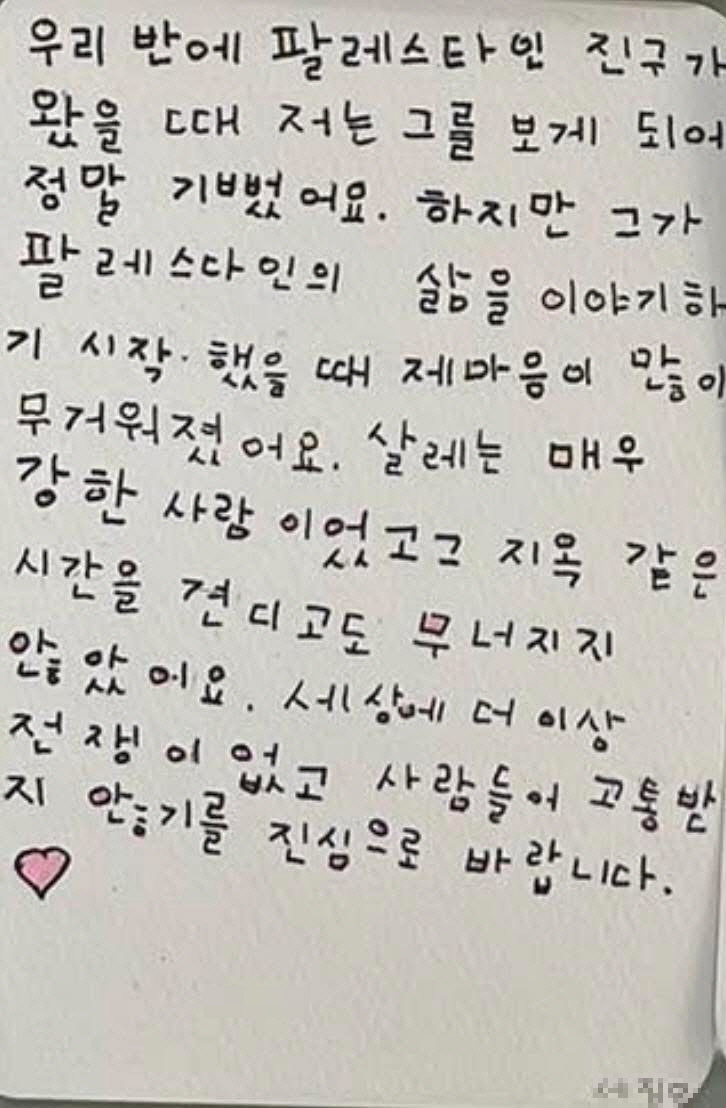 우리 반에 팔레스타인 진구가
왔을 때 저는 그를 보게 되어
정말 기뻤어요. 하지만 그가
팔레스다인의 삶을 이야기하
기 시작·했을 때 제마음이 많이
무거워졌어요. 살레는 매우
강한 사람이었고그 지옥 같은
시간을 견디고도 무너지지
않았어요. 세상에 더 이상
전쟁이 없고 사람들어 고통받
지 않기를 진심으로 바랍니다.